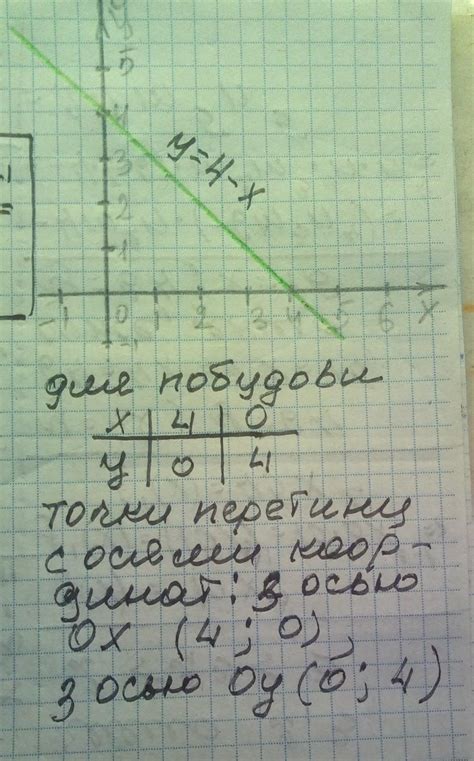 5
4
3
y=4-x
2
1
-1 0 1 2 3 4 5 6 x
-1
для побудови
x 4 0
y 0 4
точки перетину
с осями коор-
динат: з осью
OX (4; 0),
з осью Oy (0; 4)